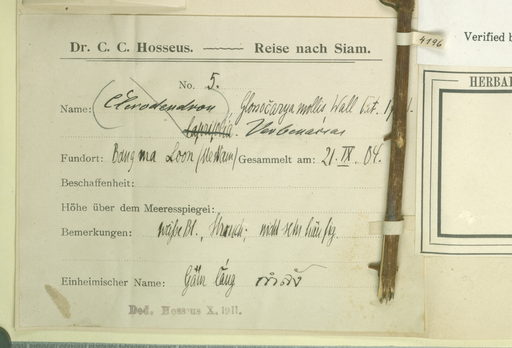 Dr. C. C. Hosseus. Reise nach Siam.
4196
Verified b
HERBAR
No. 5.
Name: (Clerodendron) Glossocarya mollis Wall
Verbenaceae
Fundort: Bang ma Loon Gesammelt am: 21. IX. 04.
Beschaffenheit:
Höhe über dem Meeresspiegel:
Bemerkungen: weiße Bl., Strauch; nicht sehr häufig.
Einheimischer Name: Găm lăng กำลัง
Ded. Hosseus X. 1911.